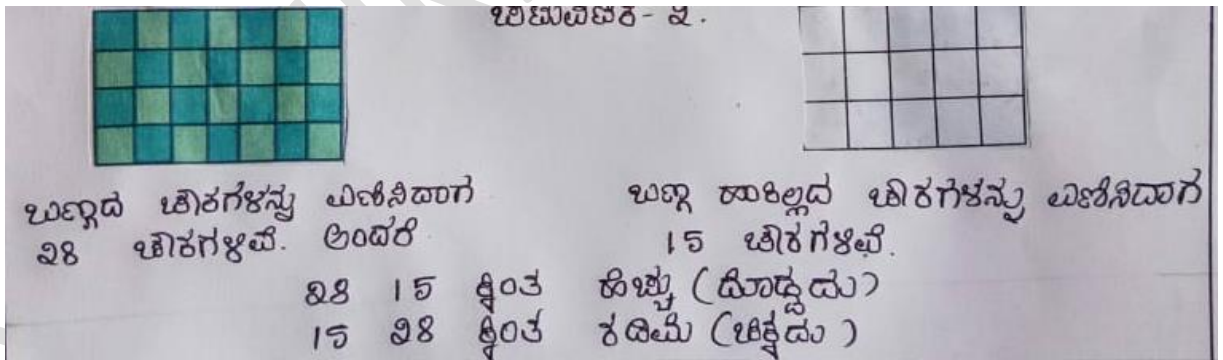 ಚಟುವಟಿಕೆ- ೩.
ಬಣ್ಣದ ಚೌಕಗಳನ್ನು ಎಣಿಸಿದಾಗ
28 ಚೌಕಗಳಿವೆ. ಅಂದರೆ
ಬಣ್ಣ ಹಾಕಿಲ್ಲದ ಚೌಕಗಳನ್ನು ಎಣಿಸಿದಾಗ
15 ಚೌಕಗಳಿವೆ.
28 15 ಕ್ಕಿಂತ ಹೆಚ್ಚು (ದೊಡ್ಡದು)
15 28 ಕ್ಕಿಂತ ಕಡಿಮೆ (ಚಿಕ್ಕದು)